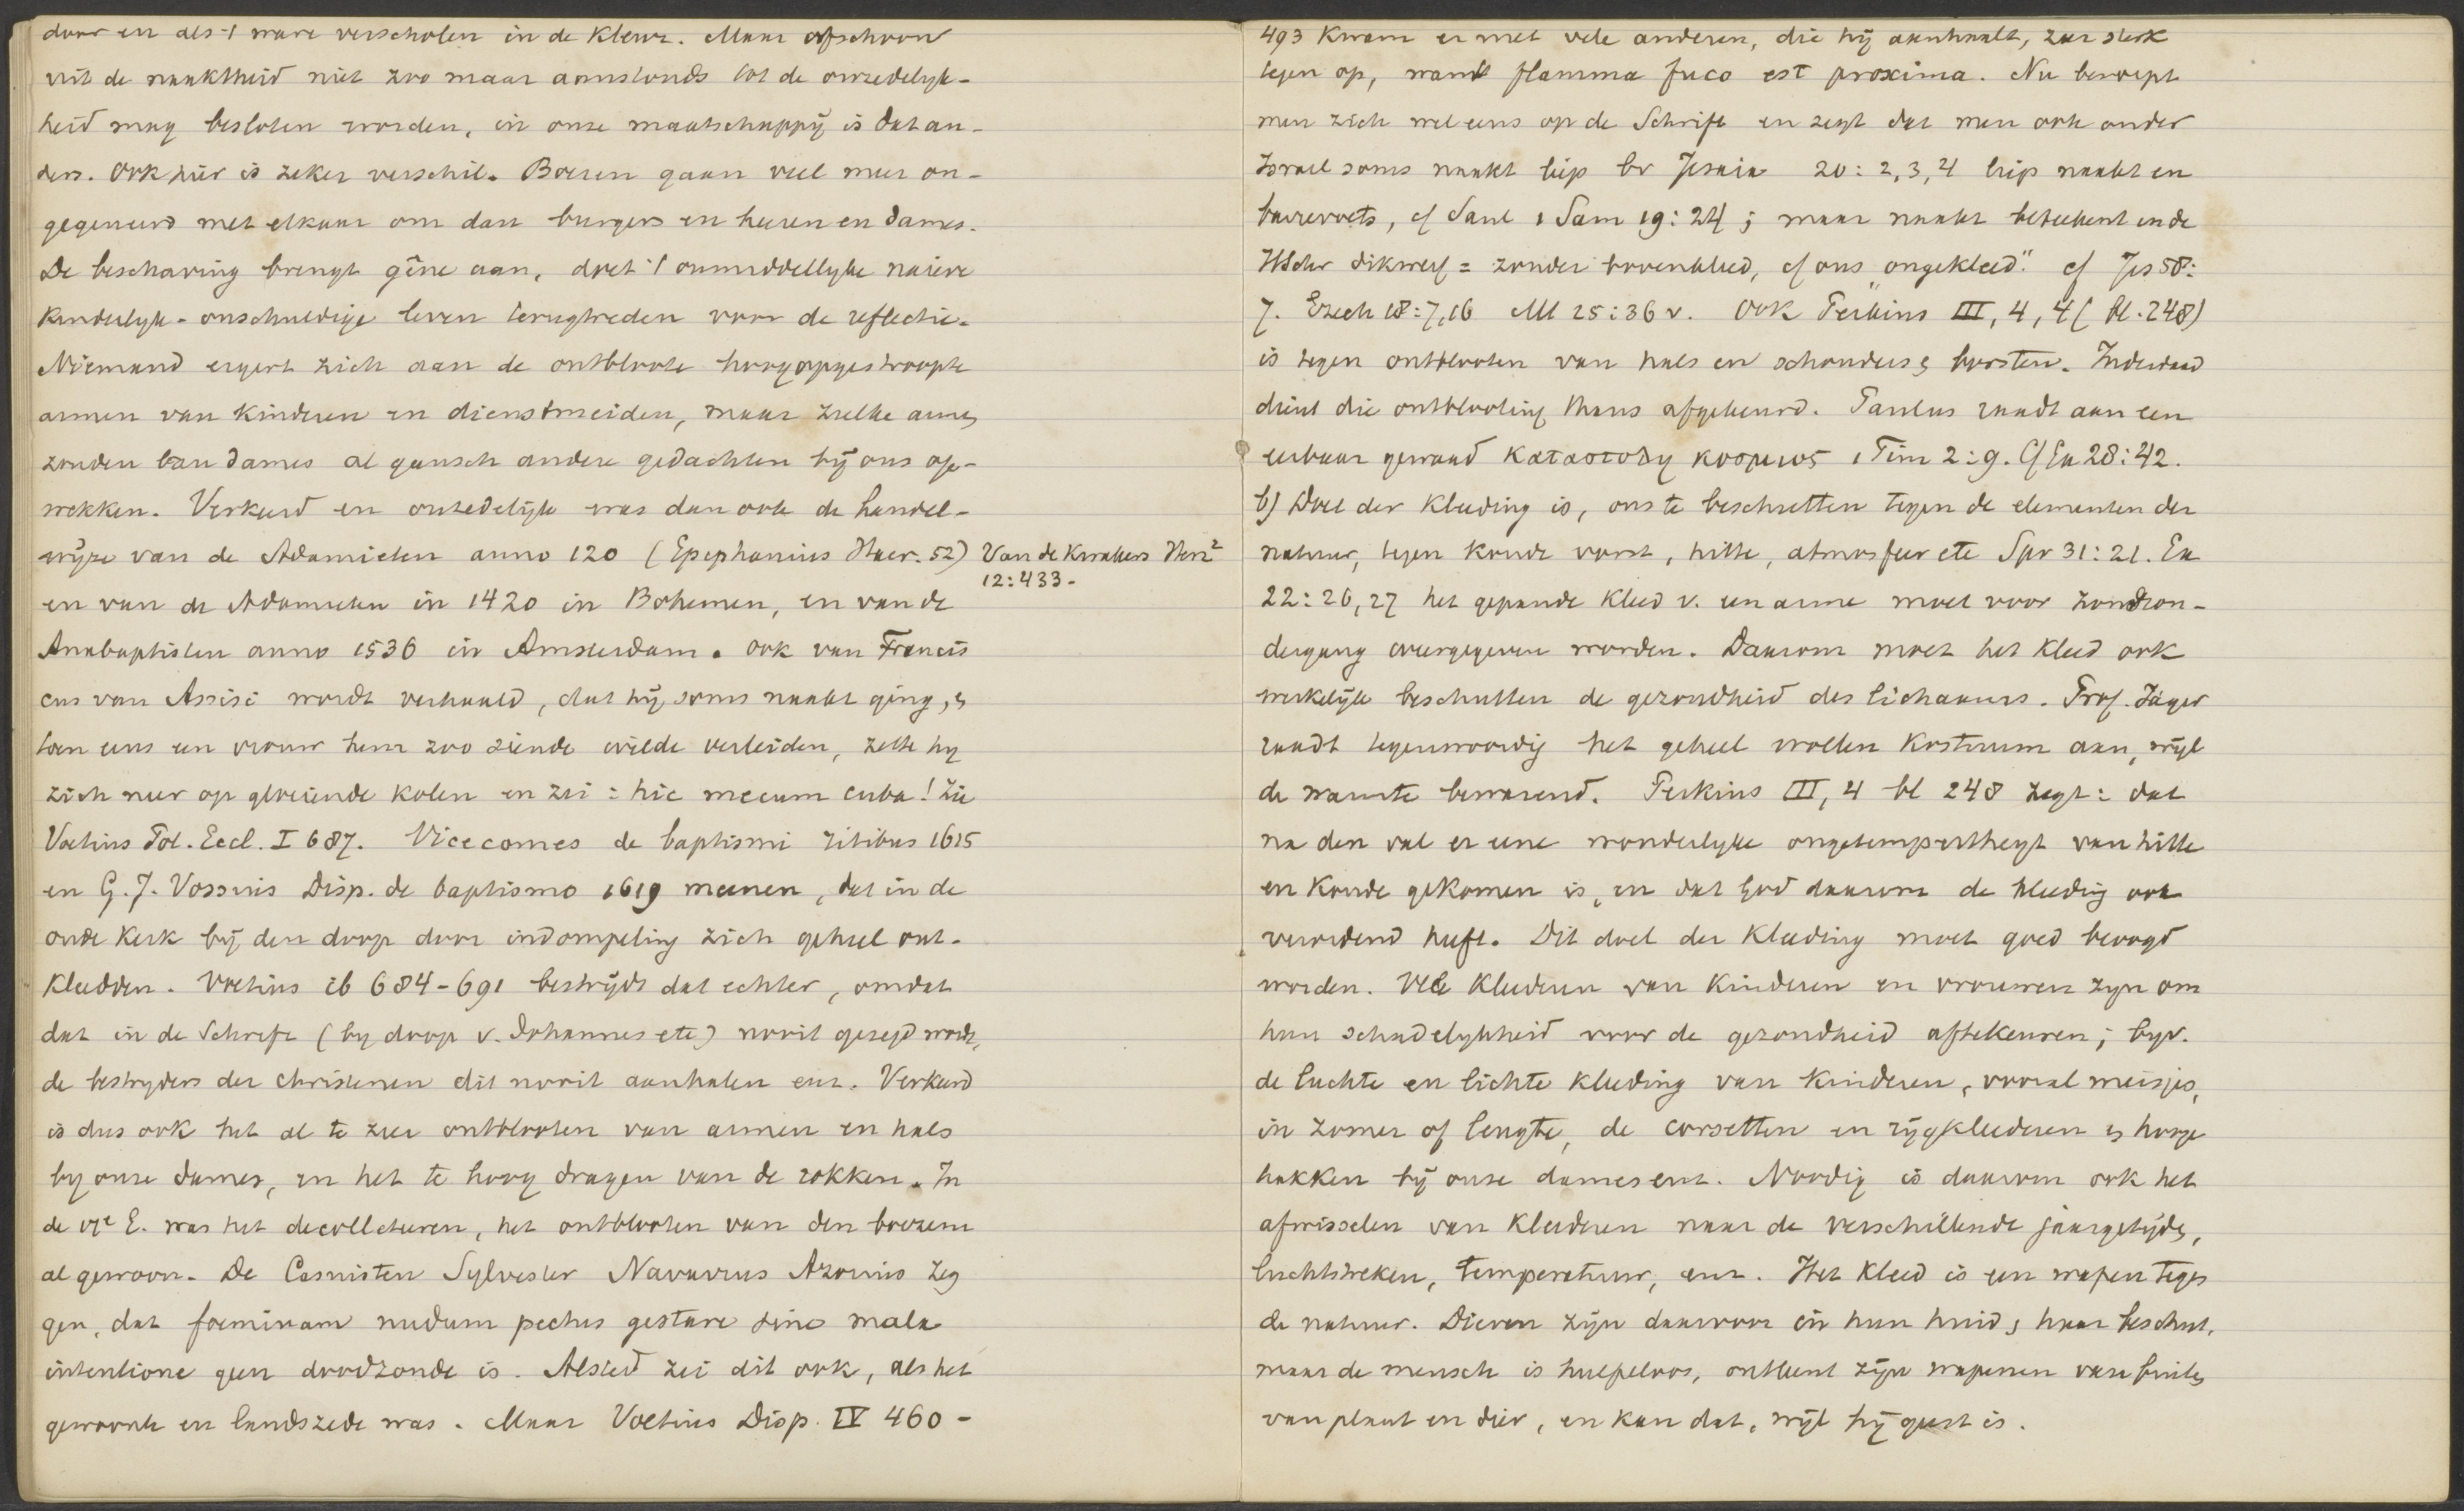 door en als 't ware verscholen in de kleur. Maar ofschoon
uit de naaktheid niet zoo maar aanstonds tot de onzedelyk-
heid mag besloten worden, in onze maatschappÿ is dat an-
ders. Ook hier is zeker verschil. Boeren gaan veel meer on-
gegeneerd met elkaar om dan burgers en heeren en dames.
De beschaving brengt gêne aan, doet 't onmiddellyke naieve
kinderlyk-onschuldige leven terugtreden voor de reflectie.
Niemand ergert zich aan de ontbloote hoogopgestroopte
armen van kinderen en dienstmeiden, maar zulke armen
zouden van dames al gansch andere gedachten bÿ ons op-
wekken. Verkeerd en onzedelÿk was dan ook de handel-
wÿze van de Adamieten anno 120 (Epiphanius Haer. 52) Van de Kwakers Herz²
12:433.
en van de Adamieten in 1420 in Bohemen, en van de
Anabaptisten anno 1536 in Amsterdam. Ook van Francis
cus van Assisi wordt verhaald, dat hÿ soms naakt ging, en
toen eens een vrouw hem zoo ziende wilde verleiden, zette hy
zich neer op gloeiende kolen en zei: hic mecum cuba! Zie
Voetius Pol. Eccl. I 687. Vicecomes de baptismi ritibus 1615
en G. J. Vossius Disp. de baptismo 1619 meenen, dat in de
oude Kerk bÿ den doop door indompeling zich geheel ont-
kleedden. Voetius ib 684-691 bestrÿdt dat echter, omdat
dat in de Schrift (by doop v. Johannes etc) nooit gezegd wordt,
de bestryders der christenen dit nooit aanhalen enz. Verkeerd
is dus ook het al te zeer ontblooten van armen en hals
by onze dames, en het te hoog dragen van de rokken. In
de vr͏e E. was het decolleteeren, het ontblooten van den boezem
al gewoon. De Casuisten Sylvester Navarrus Azorius zeg
gen, dat foeminam nudum pectus gestare sine mala
intentione geen doodzonde is. Alsted zei dit ook, als het
gewoonte en landszede was. Maar Voetius Disp. IV 460-
493 kwam er met vele anderen, die hÿ aanhaalt, zeer sterk
tegen op, want flamma fuco est proxima. Nu beroept
men zich wel eens op de Schrift en zegt dat men ook onder
Israel soms naakt liep bv Jesaia 20: 2, 3, 4 liep naakt en
barrevoets, cf Saul 1 Sam 19: 24; maar naakt beteekent in de
HSchr dikwerf = zonder bovenkleed, cf ons "ongekleed". cf Jes 58:
7. Ezech 18:7,16 Mt 25:36 v. Ook Perkins III, 4, 4 (bl. 248)
is tegen ontblooten van hals en schouders en borsten. Inderdaad
dient die ontblooting thans afgekeurd. Paulus raadt aan een
eerbaar gewaad καταστολη κοσμιος 1 Tim 2:9. Cf Ex 28:42.
b) Doel der kleeding is, ons te beschutten tegen de elementen der
natuur, tegen koude vorst, hitte, atmosfeer etc Spr 31:21. Ex
22:26,27 het gepande kleed v. een arme moet voor zonson-
dergang overgegeven worden. Daarom moet het kleed ook
werkelÿk beschutten de gezondheid des lichaams. Prof. Jäger
raadt tegenwoordig het geheel wollen kostuum aan, wÿl
de warmte bewarend. Perkins III, 4 bl 248 zegt: dat
na den val er eene wonderlyke ongetempertheyt van hitte
en koude gekomen is, en dat God daarom de kleeding ook
verordend heeft. Dit doel der kleeding moet goed beoogd
worden. Vele kleederen van kinderen en vrouwen zyn om
hun schadelykheid voor de gezondheid aftekeuren; byv.
de luchte en lichte kleeding van kinderen, vooral meisjes,
in zomer of lengte, de corsetten en rÿgkleederen en hooge
hakken bÿ onze dames enz. Noodig is daarom ook het
afwisselen van kleederen naar de verschillende jaargetÿden,
luchtstreken, temperatuur, enz. Het kleed is een wapen tegen
de natuur. Dieren zÿn daarvoor in hun huid, haar beschut,
maar de mensch is hulpeloos, ontleent zÿn wapenen van buiten
van plant en dier, en kan dat, wÿl hÿ geest is.